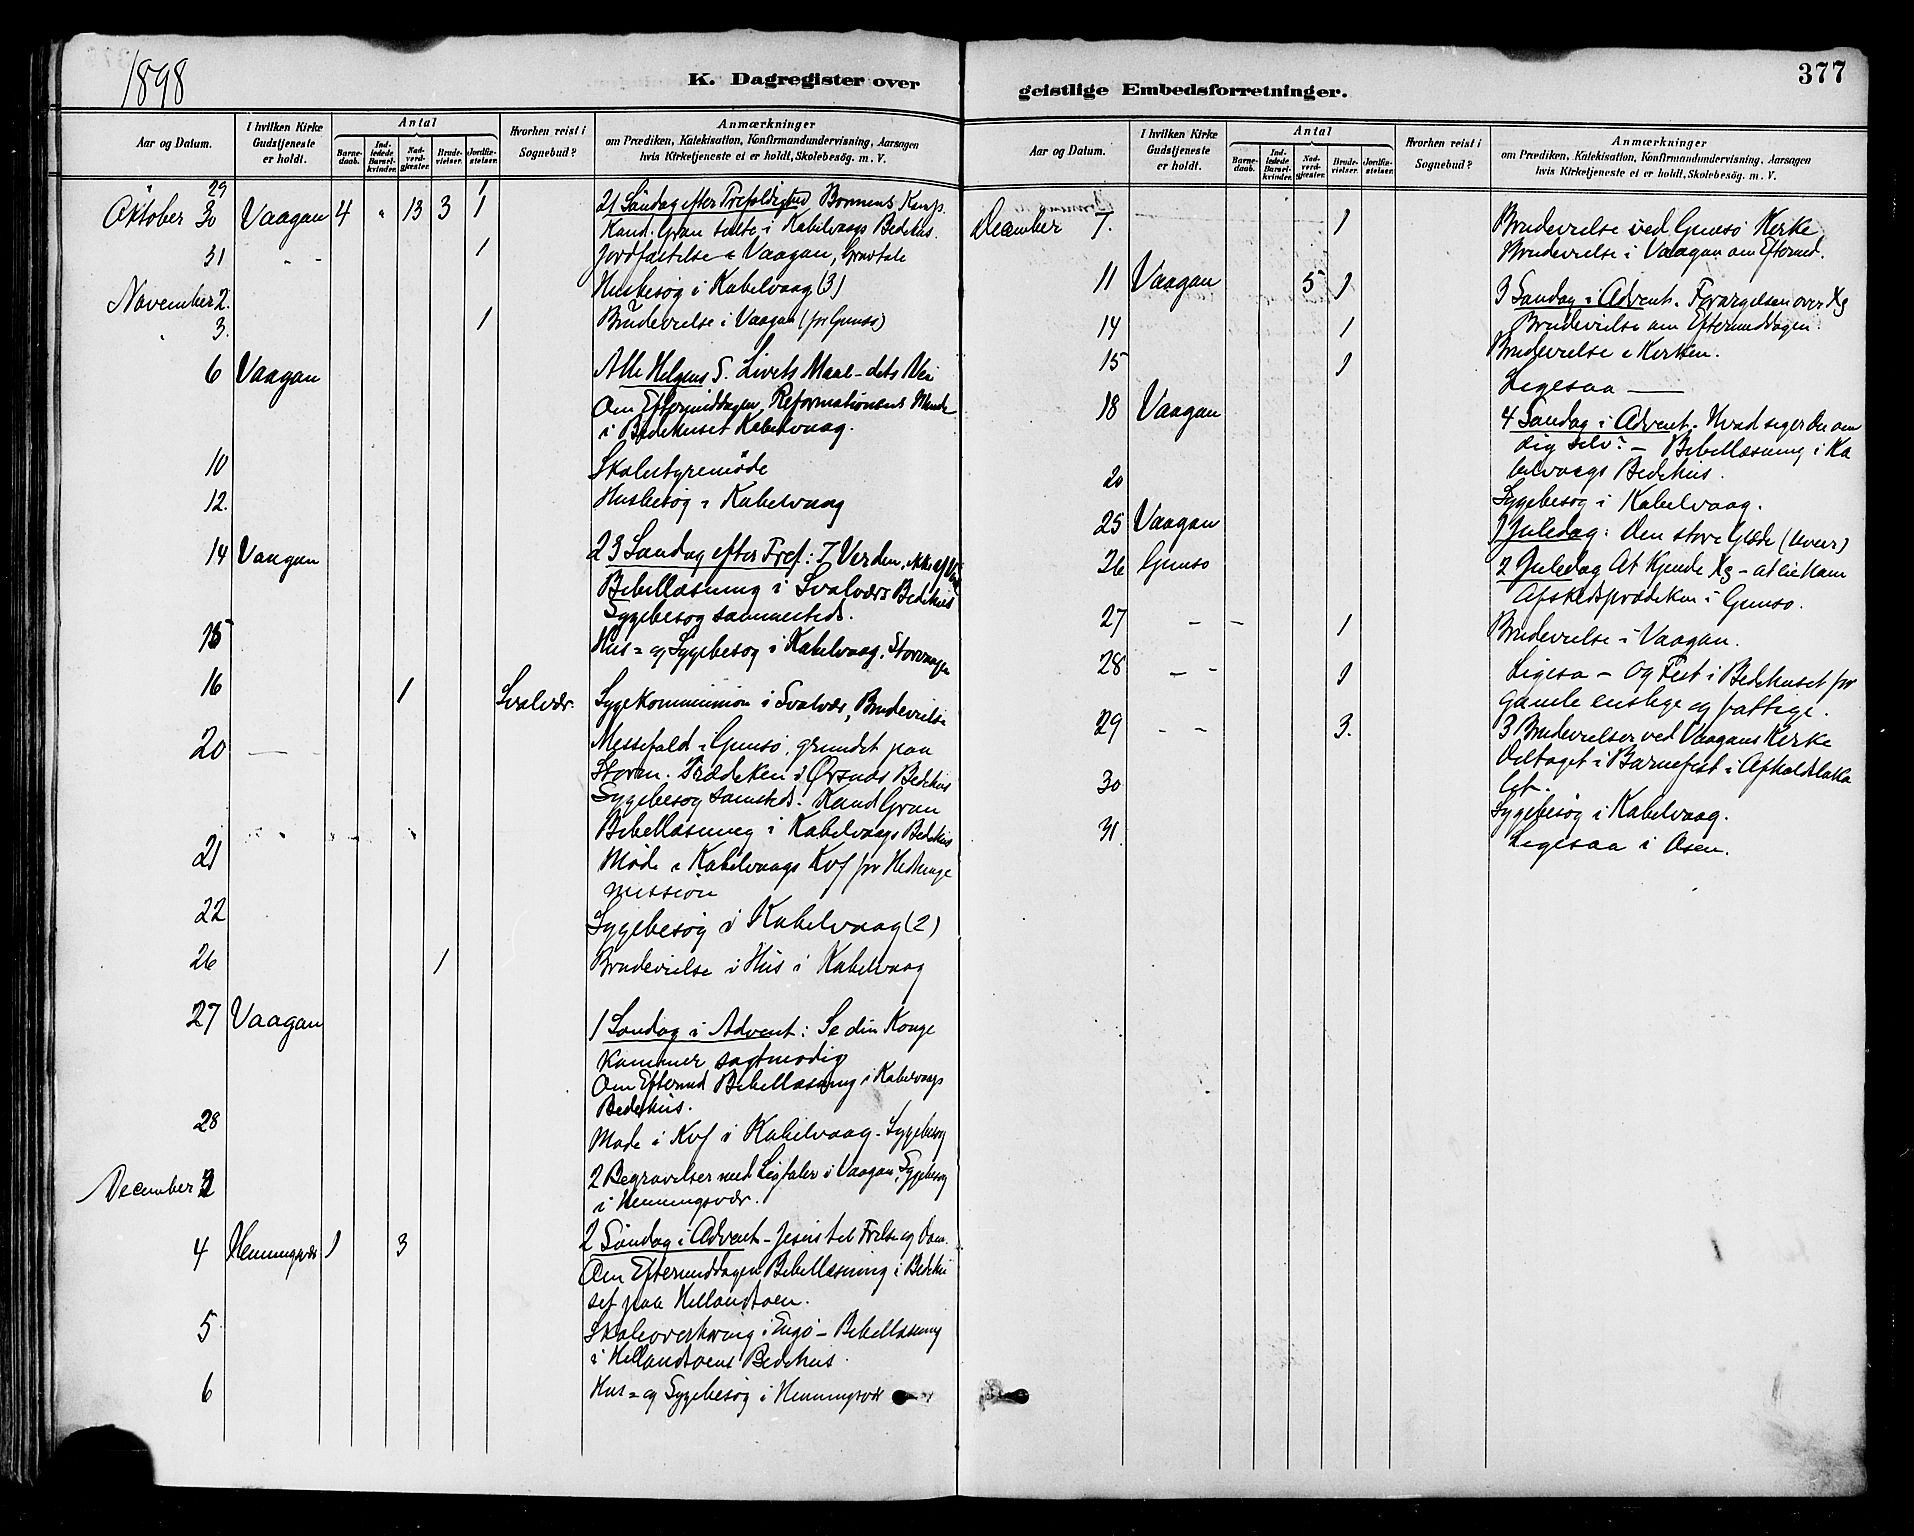 1898
K. Dagregister over
Aar og Datum.
I hvilken Kirke Gudstjeneste er holdt.
Antal
Barnedaab.
Indledede Barselkvinder.
Nadverdgjæster.
Brudevielser.
Jordfæstelser.
Hvorhen reist i Sognebud?
Anmærkninger
om Prædiken, Katekisation, Konfirmandundervisning, Aarsagen
hvis Kirketjeneste ei er holdt, Skolebesög. m. V.
29 1
Oktober 30 Vaagan 4 " 13 3 1 21 Søndag efter Trefoldighed Bønnens Kamp.
Kand. Gran talte i Kabelvaags Bedehus.
31 - - 1 Jordfæstelse i Vaagan, Gravtale
November 2. Husbesøg i Kabelvaag (3)
" 3. 1 Brudevielse i Vaagan (for Gimsø)
6 Vaagan Alle Helgens S. Livets Maal - dets Vei
Om Eftermiddagen Reformationens Minde
i Bedehuset Kabelvaag.
10 Skolestyremöde
12. Husbesøg i Kabelvaag
14 Vaagan 23 Søndag efter Tref: I Verden, ikke af
Bibellæsning i Svolvær Bedehus
Sygebesøg sammesteds.
15 Hus- og Sygebesøg i Kabelvaag, Storvaagan
16 1 Svolvær. Sygekommunion i Svolvær, Brudevielse
20 - - Messefald i Gimsø, grundet paa
Storm. Prædiken i Ørsnes Bedehus
Sygebesøg samsteds. Kand Gran
Bibellæsning i Kabelvaags Bedehus
21 Møde i Kabelvaags Kvf for Hedninge
mission
22 Sygebesøg i Kabelvaag (2)
26 1 Brudevielse i Hus i Kabelvaag
27 Vaagan 1 Søndag i Advent: Se din Konge
kommer sagtmodig
Om Eftermd Bibellæsning i Kabelvaags
Bedehus.
28 Møde i Kvf i Kabelvaag - Sygebesøg
December 2 Begravelser med Ligtaler i Vaagan, Sygebesøg
i Henningsvær.
4 Henningsvær 1 3 2 Søndag i Advent - Jesus til Frelse og Dom.
Om Eftermiddagen Bibellæsning i Bedehu
set paa Hellandtoen.
5 Skoleoverhøring i Engø - Bibellæsning
i Hellandtoens Bedehus.
6 Hus- og Sygebesøg i Henningsvær
377
geistlige Embedsforretninger.
Aar og Datum.
I hvilken Kirke Gudstjeneste er holdt.
Antal
Barnedaab.
Indledede Barselkvinder.
Nadverdgjæster.
Brudevielser.
Jordfæstelser.
Hvorhen reist i Sognebud?
Anmærkninger
om Prædiken, Katekisation, Konfirmandundervisning, Aarsagen
hvis Kirketjeneste ei er holdt, Skolebesög. m. V.
December 7. 1 Brudevielse ved Gimsø Kirke
Brudevielse i Vaagan om Eftermd.
11 Vaagan 5 1 3 Søndag i Advent. Forargelsen over Kg
Brudevielse om Eftermiddagen
14 1 Brudevielse i Kirken.
15 1 Ligesaa —
18 Vaagan 4 Søndag i Advent. Hvad siger du om
dig selv? - Bibellæsning i Ka
belvaags Bedehus.
20 Sygebesøg i Kabelvaag.
25 Vaagan 1 Juledag: Den store Glæde (Uveir)
26 Gimsø 2 Juledag At kjende Kg - at lie ham
Afskedsprædiken i Gimsø.
27 - - 1 Brudevielse i Vaagan.
28 - - 1 Ligesa - og Fest i Bedehuset for
gamle enslige og fattige.
29 - - 3. 3 Brudevielser ved Vaagans Kirke
Deltaget i Barnefest i Afholdsloka
let.
30 Sygebesøg i Kabelvaag.
31 Ligesaa i Osen.